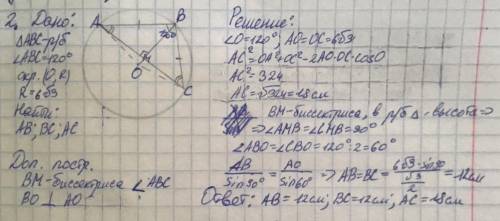 2. Дано:
ΔABC-р/б
∠ABC=120°
окр.(O,R)
R=6√3
Найти:
AB; BC; AC
Доп. постр.
BM-биссектриса ∠ABC
BO ⊥ AO
A
B
120°
M
O
C
Решение:
∠O=120°; AO=OC=6√3
AC²=OA²+OC²-2AO·OC·cosO
AC²=324
AC=√324=18см
BM-биссектриса, в р/б Δ-высота⇒
⇒∠AMB=∠CMB=90°
∠ABO=∠CBO=120°:2=60°
AB/Sin90° = AO/Sin60° ⇒ AB=BC= 6√3·sin90/(√3/2) =12см
Ответ: AB=12см; BC=12см; AC=18см